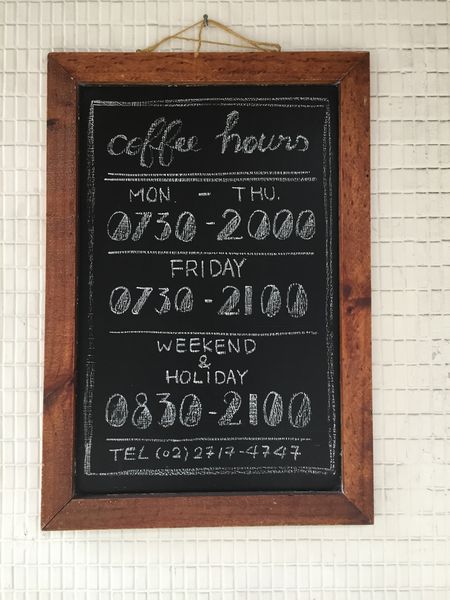 coffee hours
MON. - THU.
0730-2000
FRIDAY
0730-2100
WEEKEND
&
HOLIDAY
0830-2100
TEL (02) 2717-4747